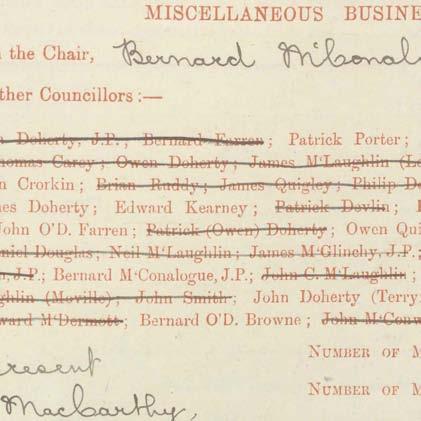 MISCELLANEOUS BUSINE
the Chair, Bernard
ther Councillors :—
Doherty, J.P.; Bernard Farren; Patrick Porter;
homas Carey; Owen Doherty; James M'Laughlin (L
n Crorkin; Brian Ruddy; James Quigley; Philip D
es Doherty; Edward Kearney; Patrick Devlin;
John O'D. Farren; Patrick (Owen) Doherty; Owen Qui
niel Douglas; Neil M'Laughlin; James M'Glinchy, J.P.;
J.P.; Bernard M'Conalogue, J.P.; John C. M'Laughlin;
ghlin (Moville); John Smith; John Doherty (Terry
ward M'Dermott; Bernard O'D. Browne; John M'Conw
NUMBER OF M
resent
NUMBER OF M
MacCarthy,